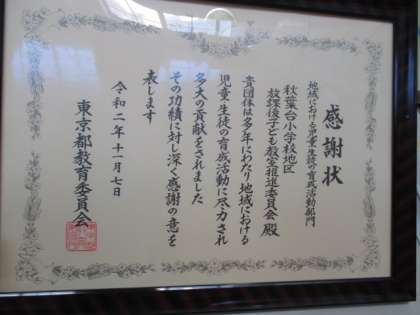 感謝状
地域における児童・生徒の育成活動部門
秋葉台小学校地区
放課後子ども教室推進委員会 殿
貴団体は多年にわたり地域における
児童・生徒の育成活動に尽力され
多大の貢献をされました
その功績に対し深く感謝の意を
表します
令和二年十一月七日
東京都教育委員会